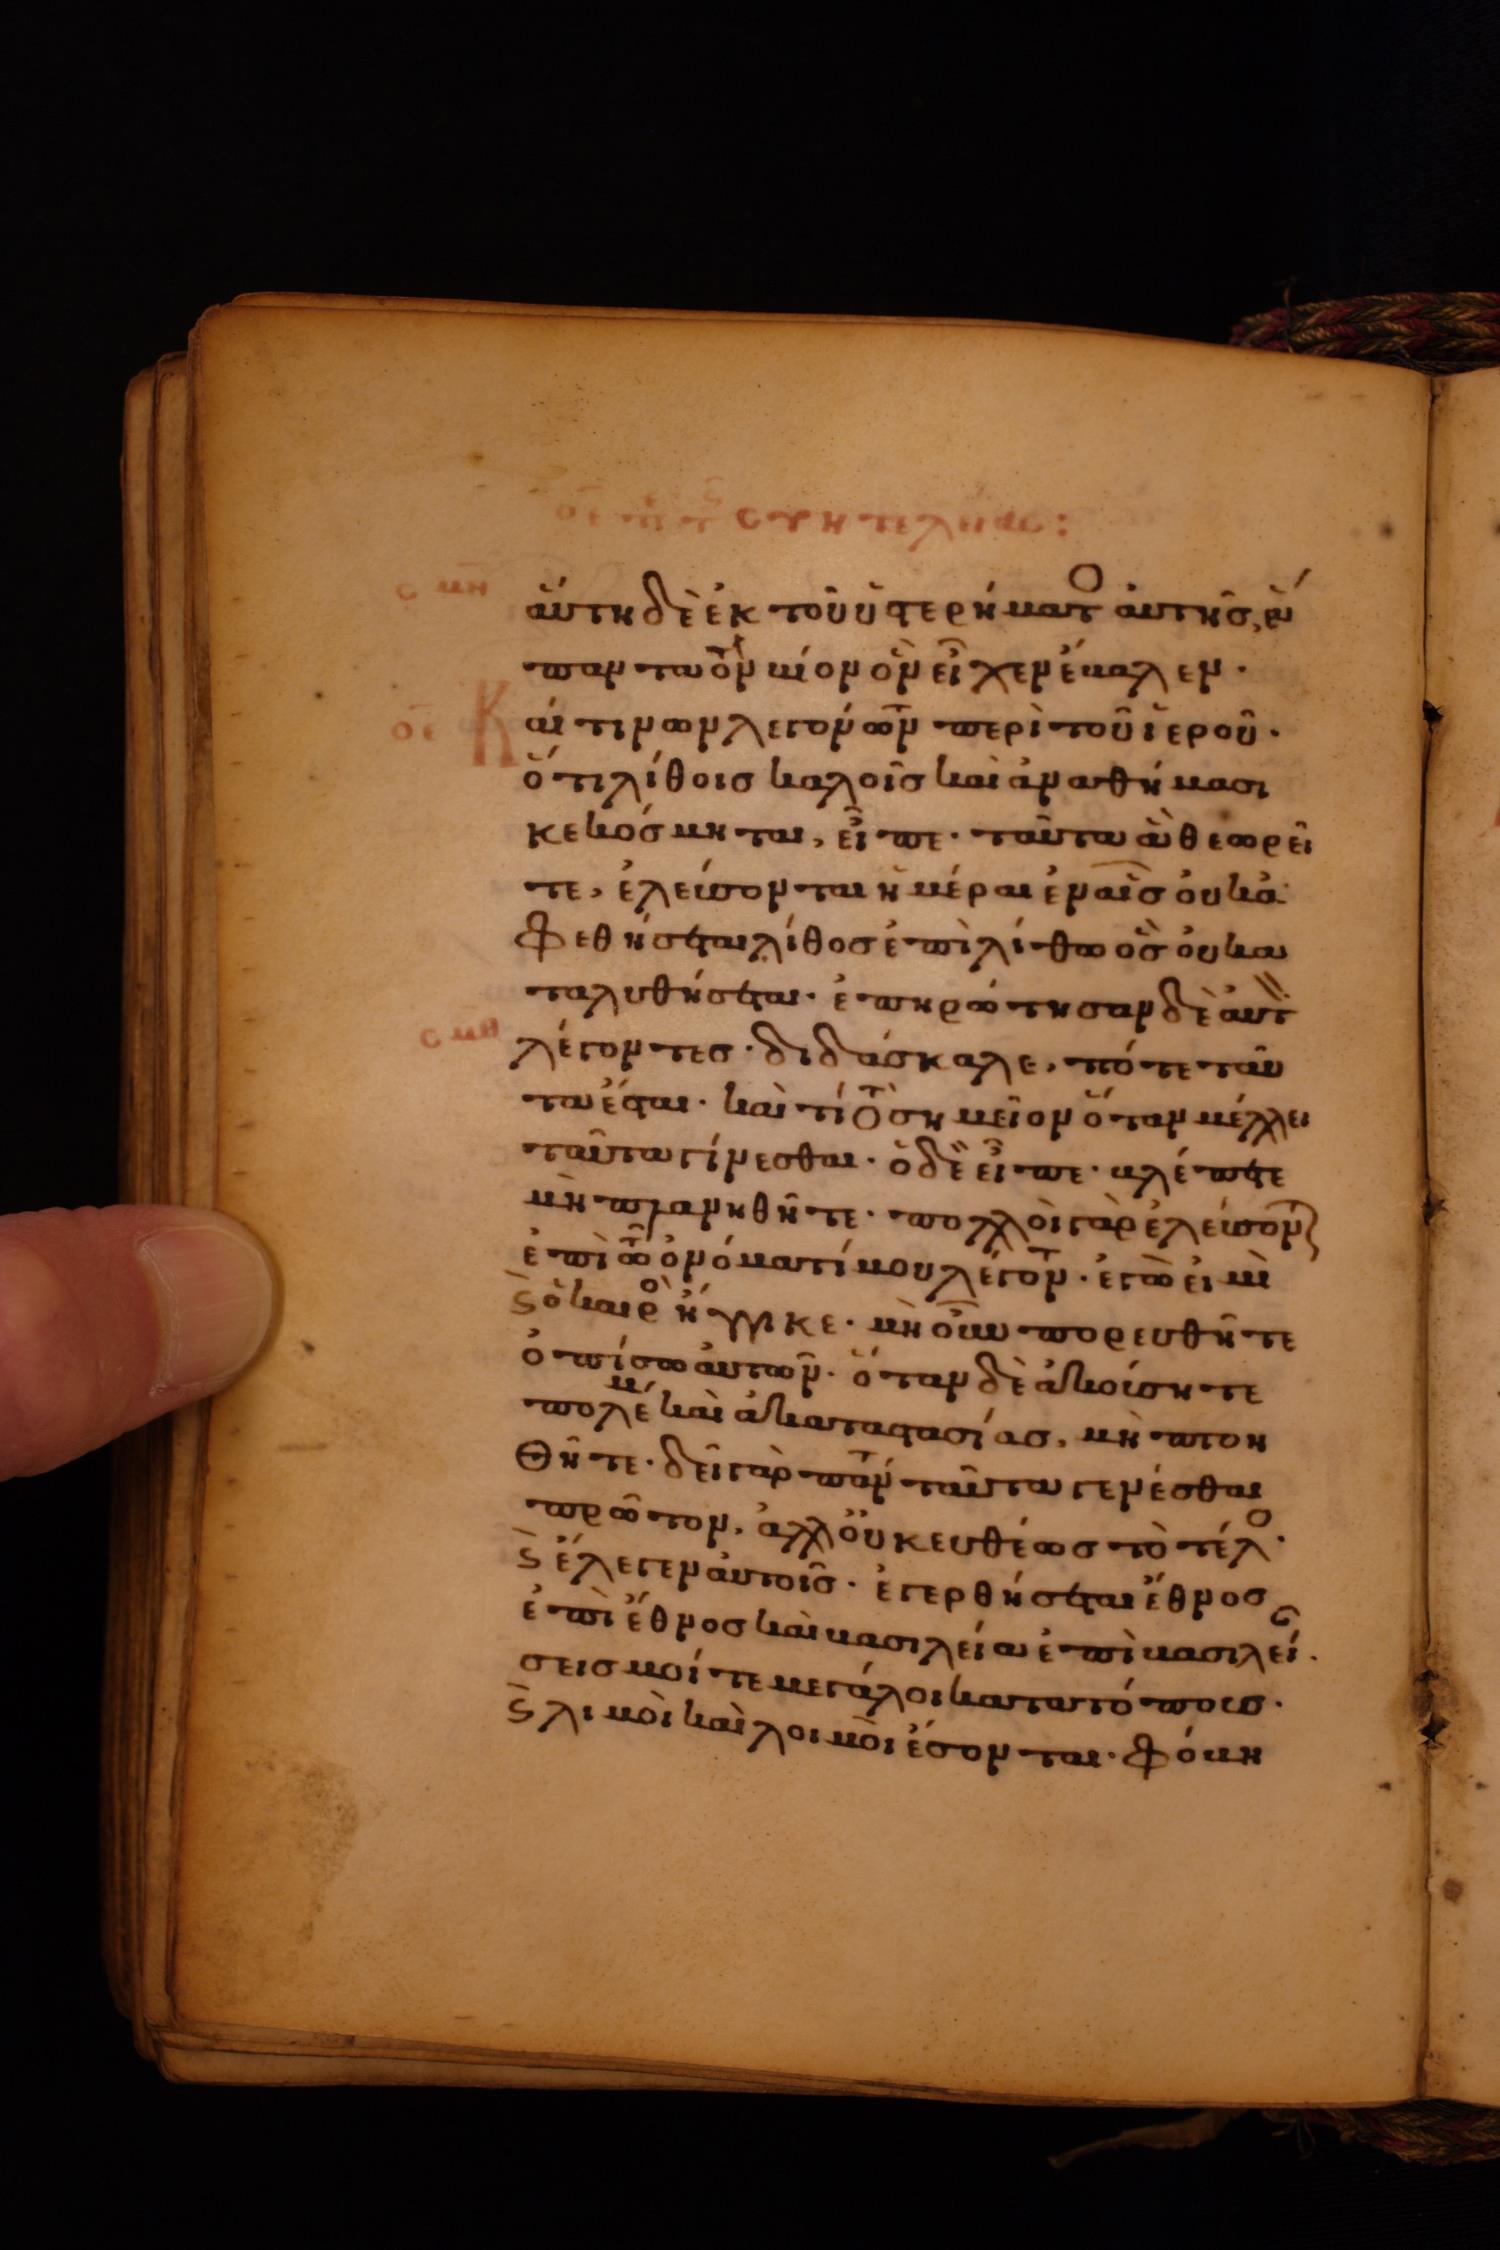 οε περι της συντελειας:
σμη
αὕτη δὲ ἐκ τοῦ ὑστερήματο αὐτῆς, ἅ
παντα τὸν βίον ὃν εἶχεν ἔβαλεν·
οε Καί τινων λεγόντων περὶ τοῦ ἱεροῦ·
ὅτι λίθοις καλοῖς καὶ ἀναθήμασι
κεκόσμηται, εἶπε· ταῦτα ἃ θεωρεῖ
τε, ἐλεύσονται ἡμέραι ἐν αἷς οὐκ ἀ
φεθήσεται λίθος ἐπὶ λίθω ὃς οὐ κα
ταλυθήσεται· ἐπηρώτησαν δὲ αὐτ
σμθ
λέγοντες· διδάσκαλε, πότε ταῦ
τα ἔσται· καὶ τί τὸ σημεῖον ὅταν μέλλει
ταῦτα γίνεσθαι· ὁ δὲ εἶπε· βλέπετε
μὴ πλανηθῆτε· πολλοὶ γὰρ ἐλεύσοντ
ἐπὶ τῶ ὀνόματί μου λέγοντ· ἐγὼ εἰμὶ
ϛ ὁ καιρὸ ἤγγικε· μὴ οὖν πορευθῆτε
ὀπίσω αὐτῶν· ὅταν δὲ ἀκούσητε
πολέμ καὶ ἀκαταστασίας, μὴ πτοη
θῆτε· δεῖ γὰρ πάντ ταῦτα γενέσθαι
πρῶτον, ἀλλ οὐκ εὐθέως τὸ τέλο·
ϛ ἔλεγεν αὐτοῖς· ἐγερθήσεται ἔθνος
ἐπὶ ἔθνος καὶ βασιλεία ἐπὶ βασιλεί·
σεισμοί τε μεγάλοι κατα τόπους·
ϛ λιμοὶ καὶ λοιμοὶ ἔσονται· φόβη